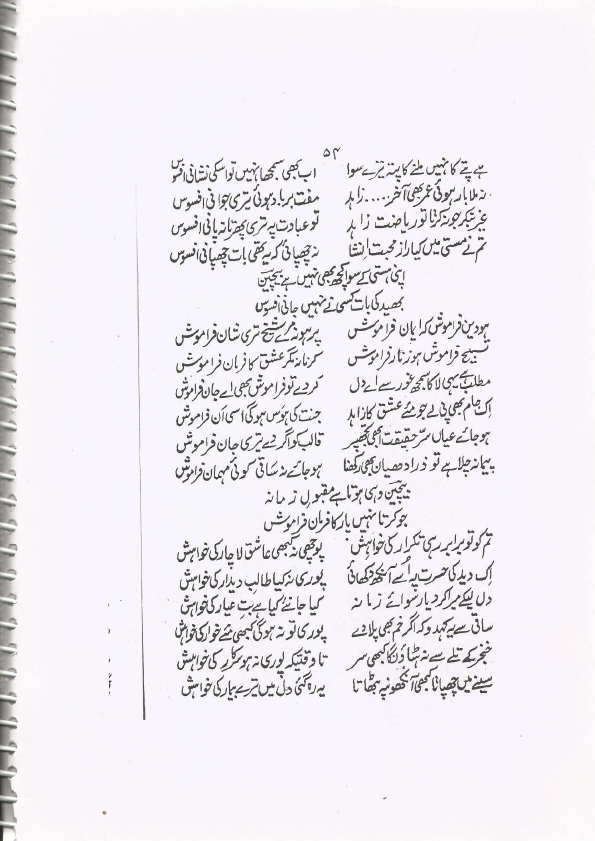 ۵۴
ہے پتے کا نہیں ملنے کا پتہ تیرے سوا اب بھی سمجھا نہیں تو اسکی نشانی افسوس
نہ ملا یار ہوئی عمر بھی آخر .... زاہد مفت برباد ہوئی تیری جوانی افسوس
غیر تکبر جو نہ کرتا تو ریاضت زاہد تو عبادت پہ تری پھرتا نہ پانی افسوس
تم نے مستی میں کیا راز محبت افشا نہ چھپائی کہ یہ تھی بات چھپانی افسوس
اپنی ہستی کے سوا کچھ بھی نہیں ہے بیچین
بھید کی بات کسی نے نہیں جانی افسوس
ہو دین فراموش کہ ایمان فراموش پر ہو نہ مرے شیخ تری شان فراموش
تسبیح فراموش ہو زنار فراموش کرنا نہ مگر عشق کا فرمان فراموش
مطلب ہے یہی لا کا سمجھ غور سے اے دل کر دے تو فراموش بھی اے جان فراموش
اک جام بھی پی لے جو مئے عشق کا زاہد جنت کی ہوس ہوگی اسی آن فراموش
ہو جائے عیاں سرِّ حقیقت ابھی تجھپر قالب کو اگر دے تیری جان فراموش
پیمانہ چلا ہے تو ذرا دھیان بھی رکھنا ہو جائے نہ ساقی کوئی مہمان فراموش
بیچین وہی ہوتا ہے مقبول زمانہ
جو کرتا نہیں یار کا فرمان فراموش
تم کو تو برابر رہی تکرار کی خواہش پوچھی نہ کبھی عاشق لاچار کی خواہش
اک دید کی حسرت پہ اُسے آنکھ دکھائی پوری نہ کیا طالب دیدار کی خواہش
دل لیکے مرا کر دیا رسوائے زمانہ کیا جانئے کیا ہے بت عیار کی خواہش
ساقی سے یہ کہدو کہ اگر خم بھی پلا دے پوری تو نہ ہوگی کبھی مئے خوار کی خواہش
خنجر کے تلے سے نہ ہٹاؤنگا کبھی سر تا وقتیکہ پوری نہ ہو کی خواہش
سینے میں چھپاتا کبھی آنکھونپہ بٹھاتا یہ رہ گئی دل میں ترے بیمار کی خواہش